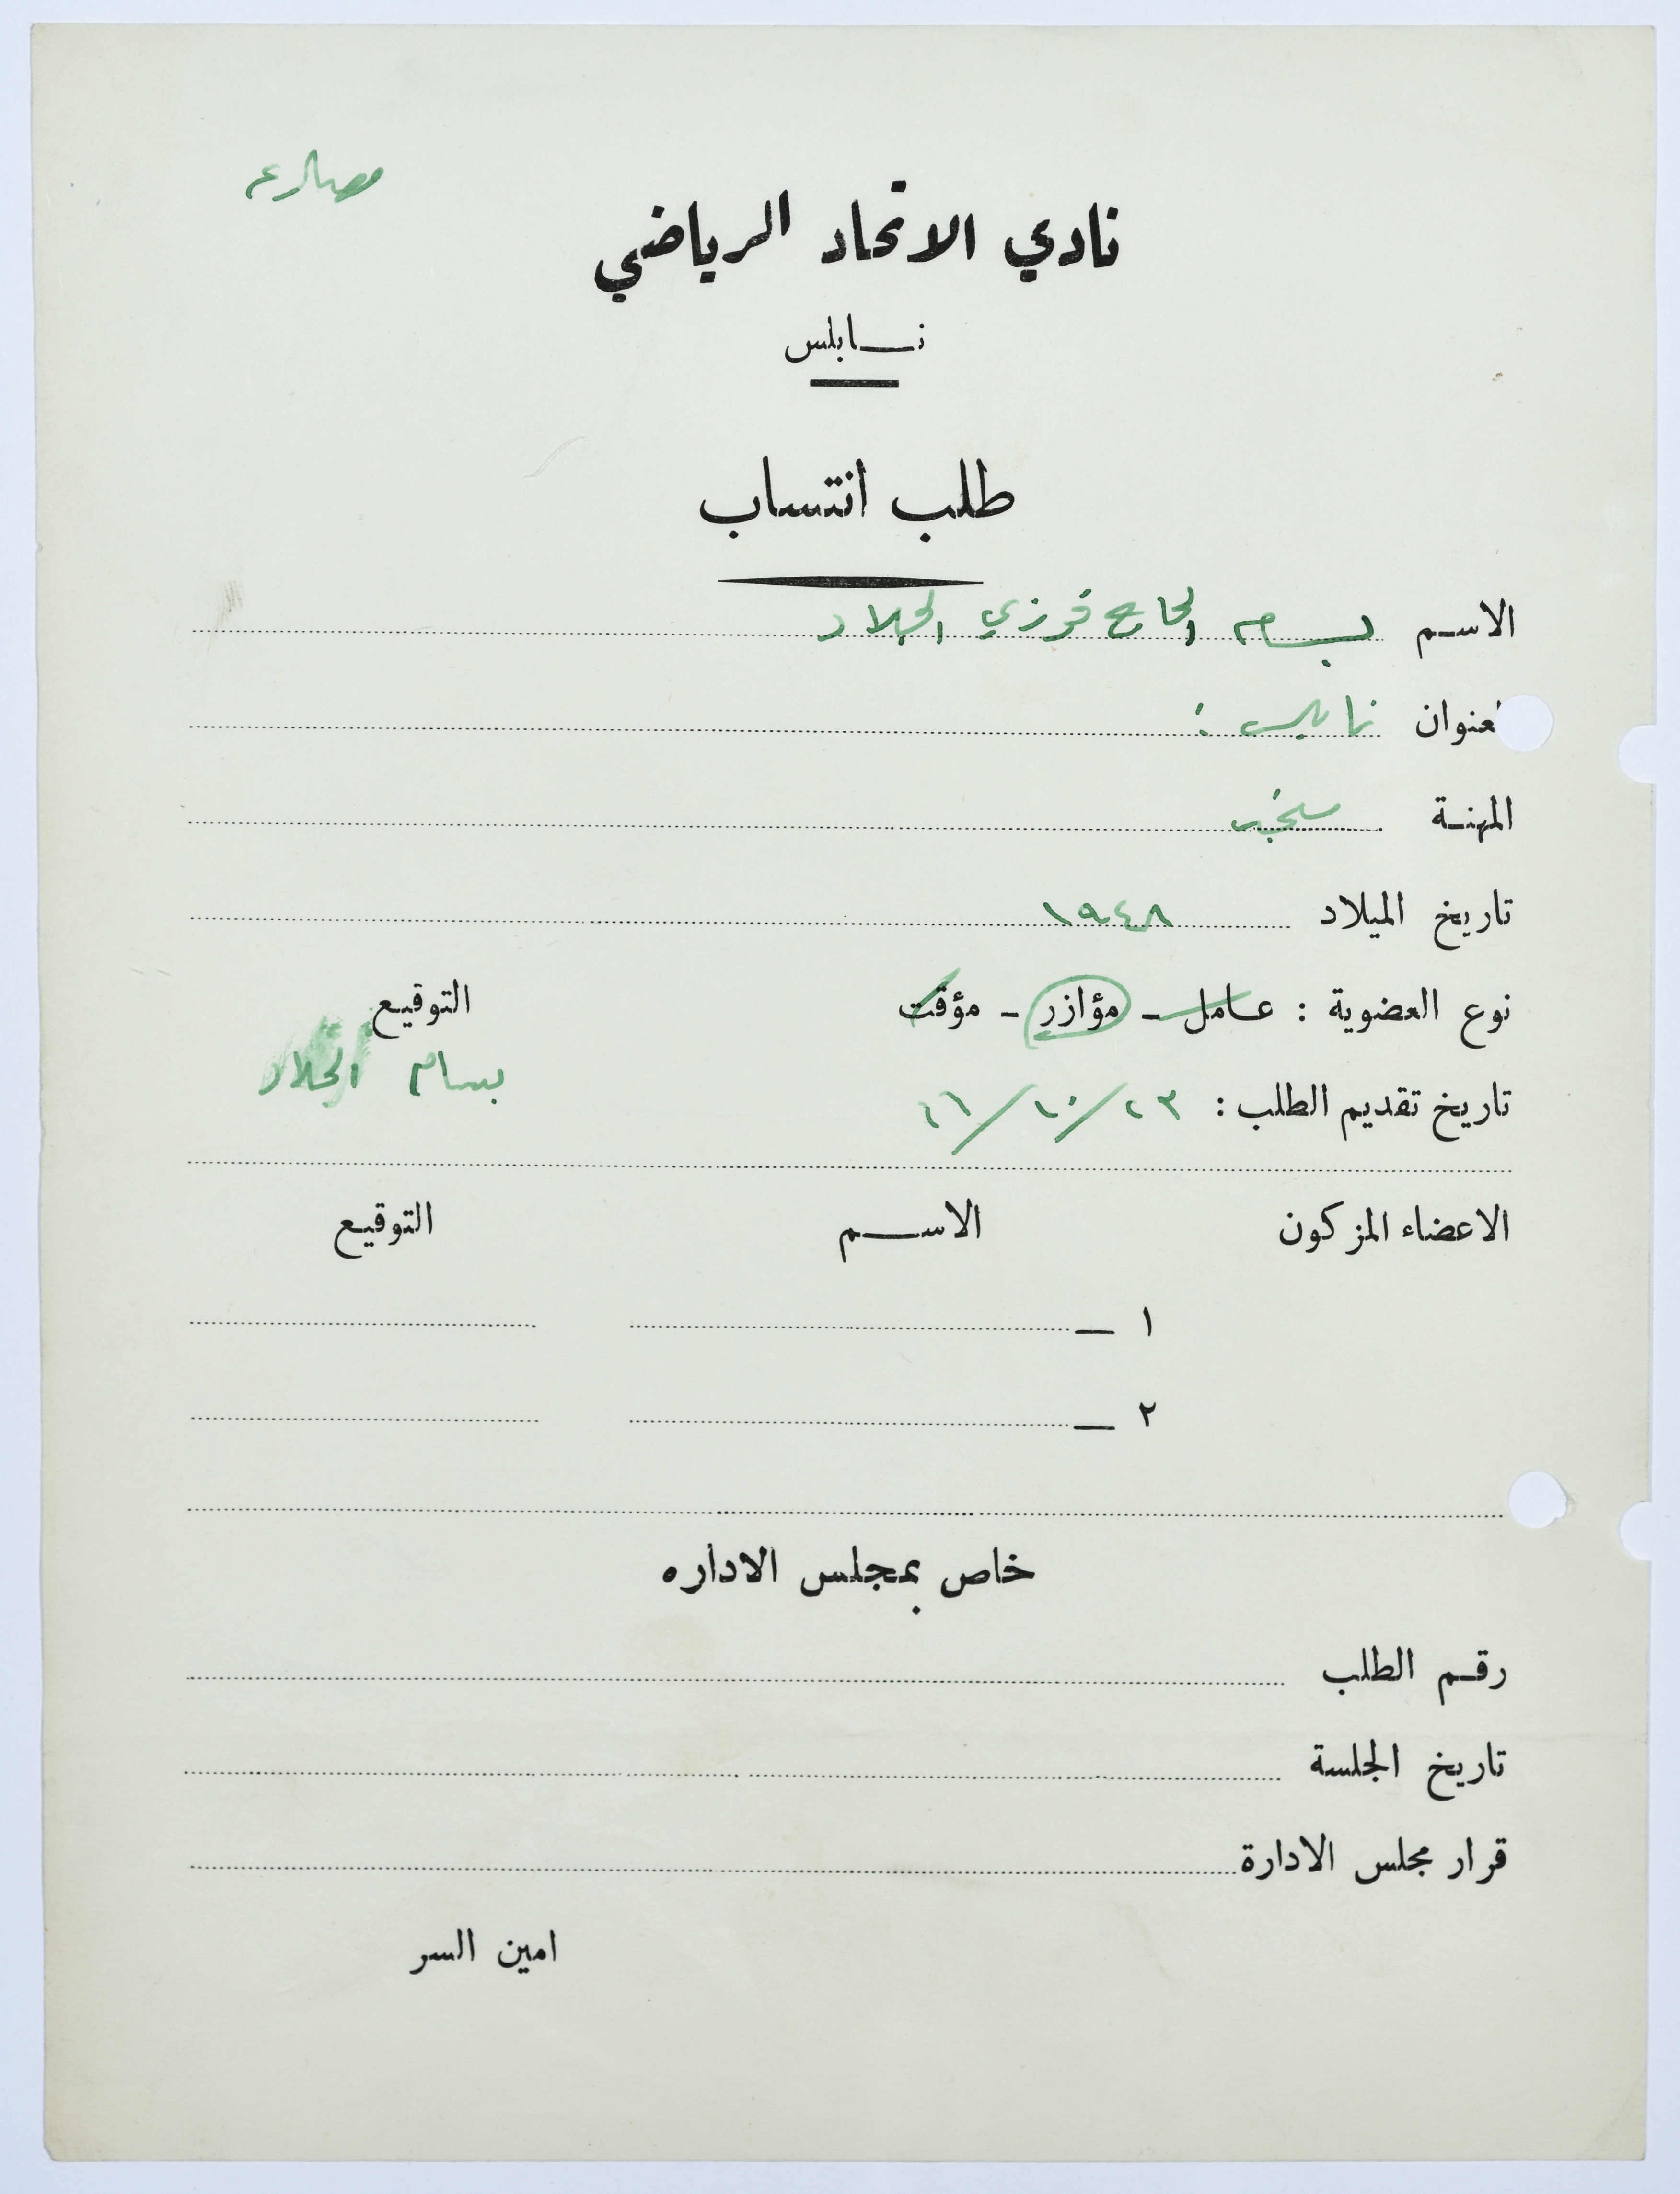 مصارع
نادي الاتحاد الرياضي
نابلس
طلب انتساب
الاسم بسام الحاج فوزي الجلاد
العنوان نابلس :
المهنة
تاريخ الميلاد ١٩٤٨
نوع العضوية : عامل - مؤازر - مؤقت التوقيع
بسام الجلاد
تاريخ تقديم الطلب : ٢٣/١٠/٦٦
الاعضاء المزكون الاسم التوقيع
١ —
٢ —
خاص بمجلس الاداره
رقم الطلب
تاريخ الجلسة
قرار مجلس الادارة
امين السر